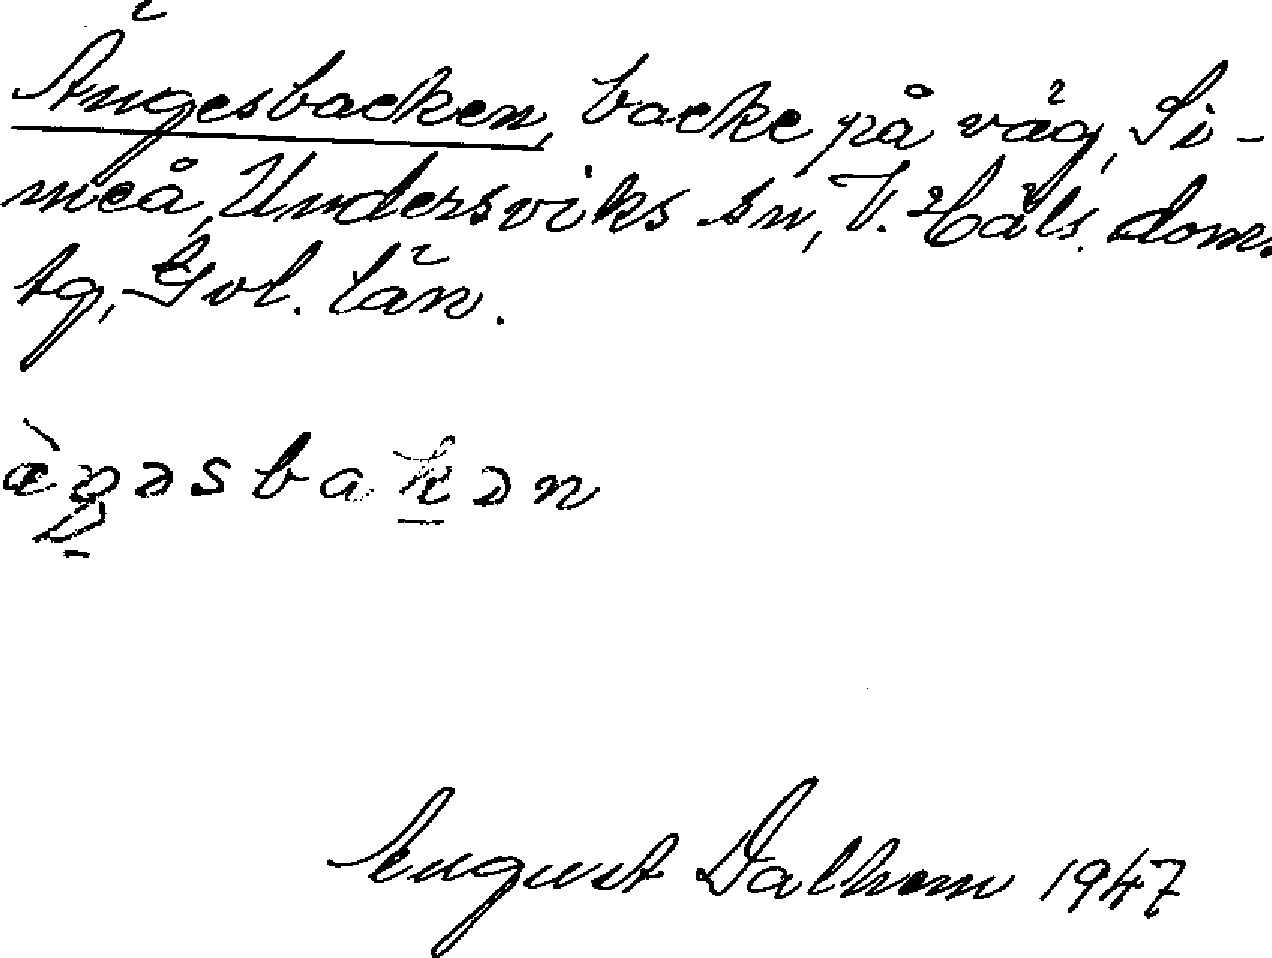 Ängesbacken, backe på väg, Si-
meå, Undersviks sn, V. Häls. dom.
sg, Gvl. län.
æ̀ŋəsbakən
August Dalhem 1947